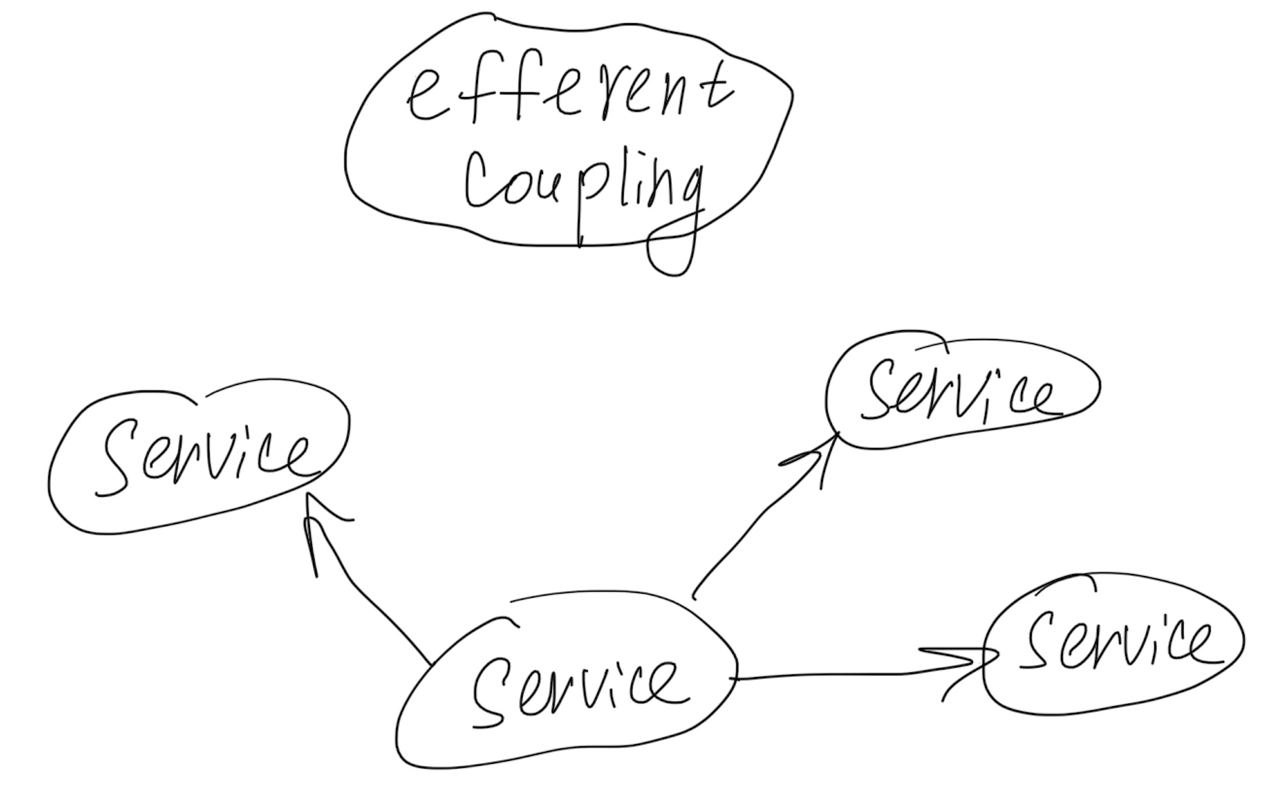 efferent
coupling
Service
Service
Service
Service